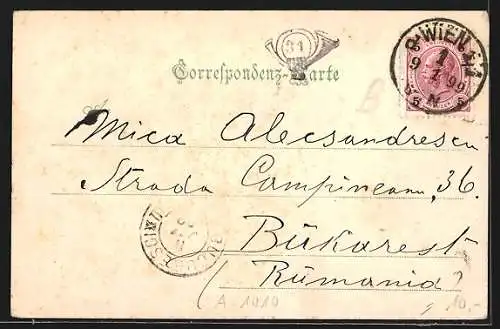 31
Correspondenz-Karte
WIEN
Mica Alecsandrescu
Strada Campineanu, 36.
Bukarest
(Rumania)
A 1010
10,-